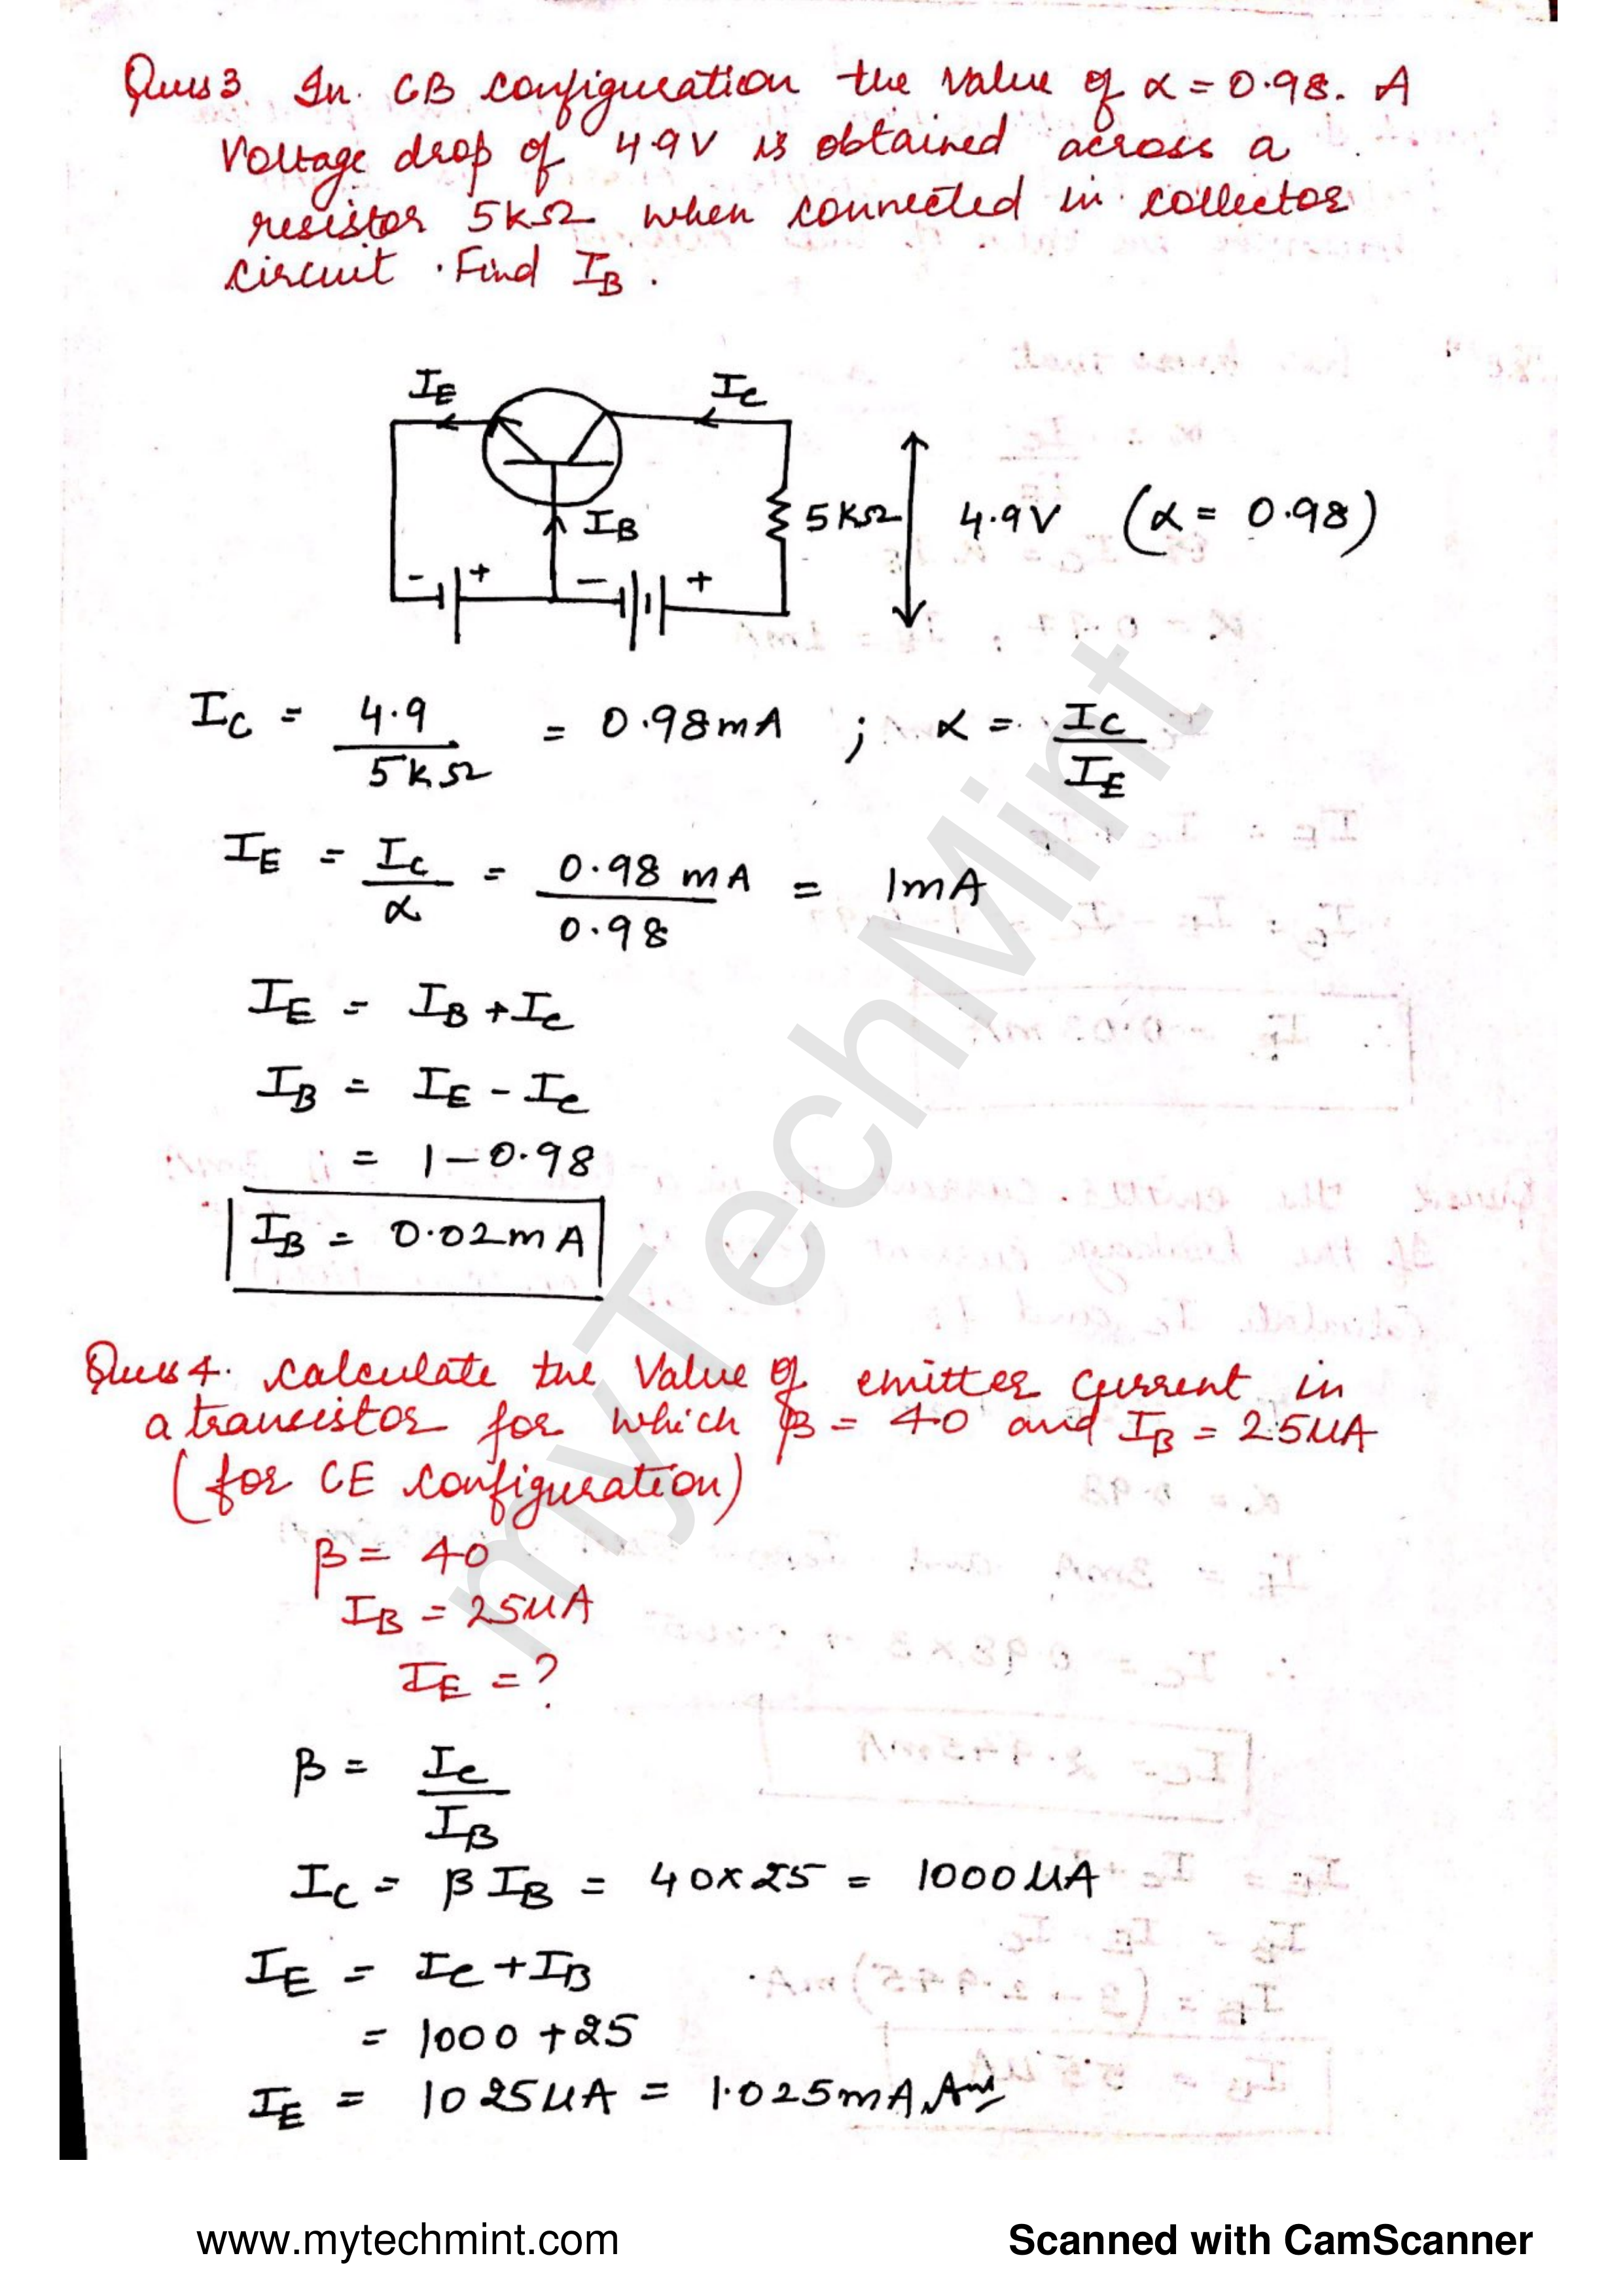 Ques 3. In. CB configuration the value of α = 0.98. A
voltage drop of 4.9V is obtained across a
resistor 5kΩ when connected in collector
circuit. Find IB.
IE
IC
IB
5KΩ
4.9V (α = 0.98)
- +
- +
IC = 4.9 / 5kΩ = 0.98mA ; α = IC / IE
IE = IC / α = 0.98 mA / 0.98 = 1mA
IE = IB + IC
IB = IE - IC
= 1 - 0.98
IB = 0.02mA
Ques 4. Calculate the value of emitter current in
a transistor for which β = 40 and IB = 25μA
(for CE configuration)
β = 40
IB = 25μA
IE = ?
β = IC / IB
IC = β IB = 40x25 = 1000μA
IE = IC + IB
= 1000 + 25
IE = 1025μA = 1.025mA Ans
myTechMint
www.mytechmint.com
Scanned with CamScanner